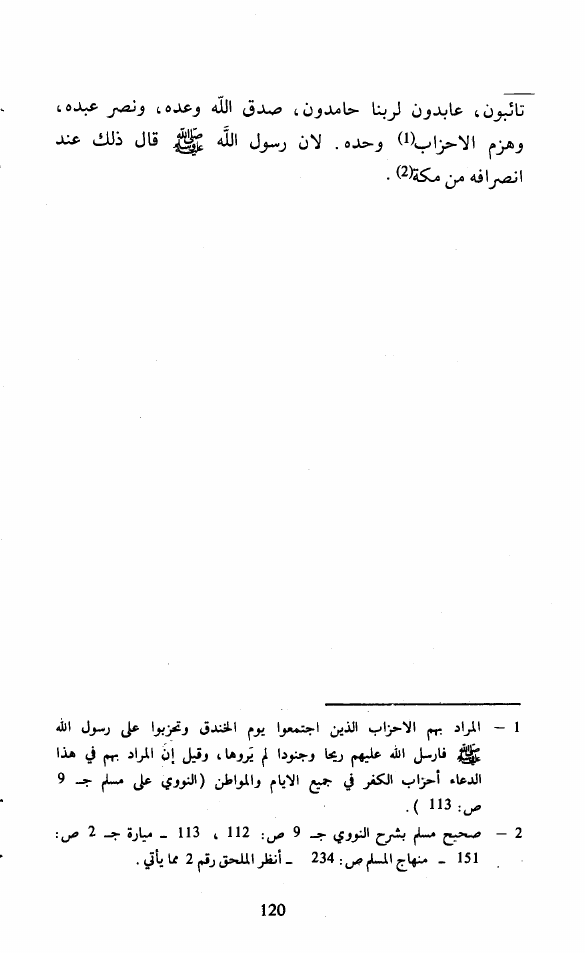 تائبون، عابدون لربنا حامدون، صدق اللّه وعده، ونصر عبده،
وهزم الاحزاب(1) وحده. لان رسول اللَّه ﷺ قال ذلك عند
انصرافه من مكة(2).
1 – المراد بهم الاحزاب الذين اجتمعوا يوم الخندق وتحزبوا على رسول الله
ﷺ فارسل الله عليهم ريحا وجنودا لم يَروها، وقيل إنّ المراد بهم في هذا
الدعاء أحزاب الكفر في جميع الايام والمواطن (النووي على مسلم جـ 9
ص: 113 ).
2 – صحيح مسلم بشرح النووي جـ 9 ص: 112 ، 113 ـ ميارة جـ 2 ص:
151 ـ منهاج المسلم ص: 234 ـ أنظر الملحق رقم 2 مما يأتي.
120